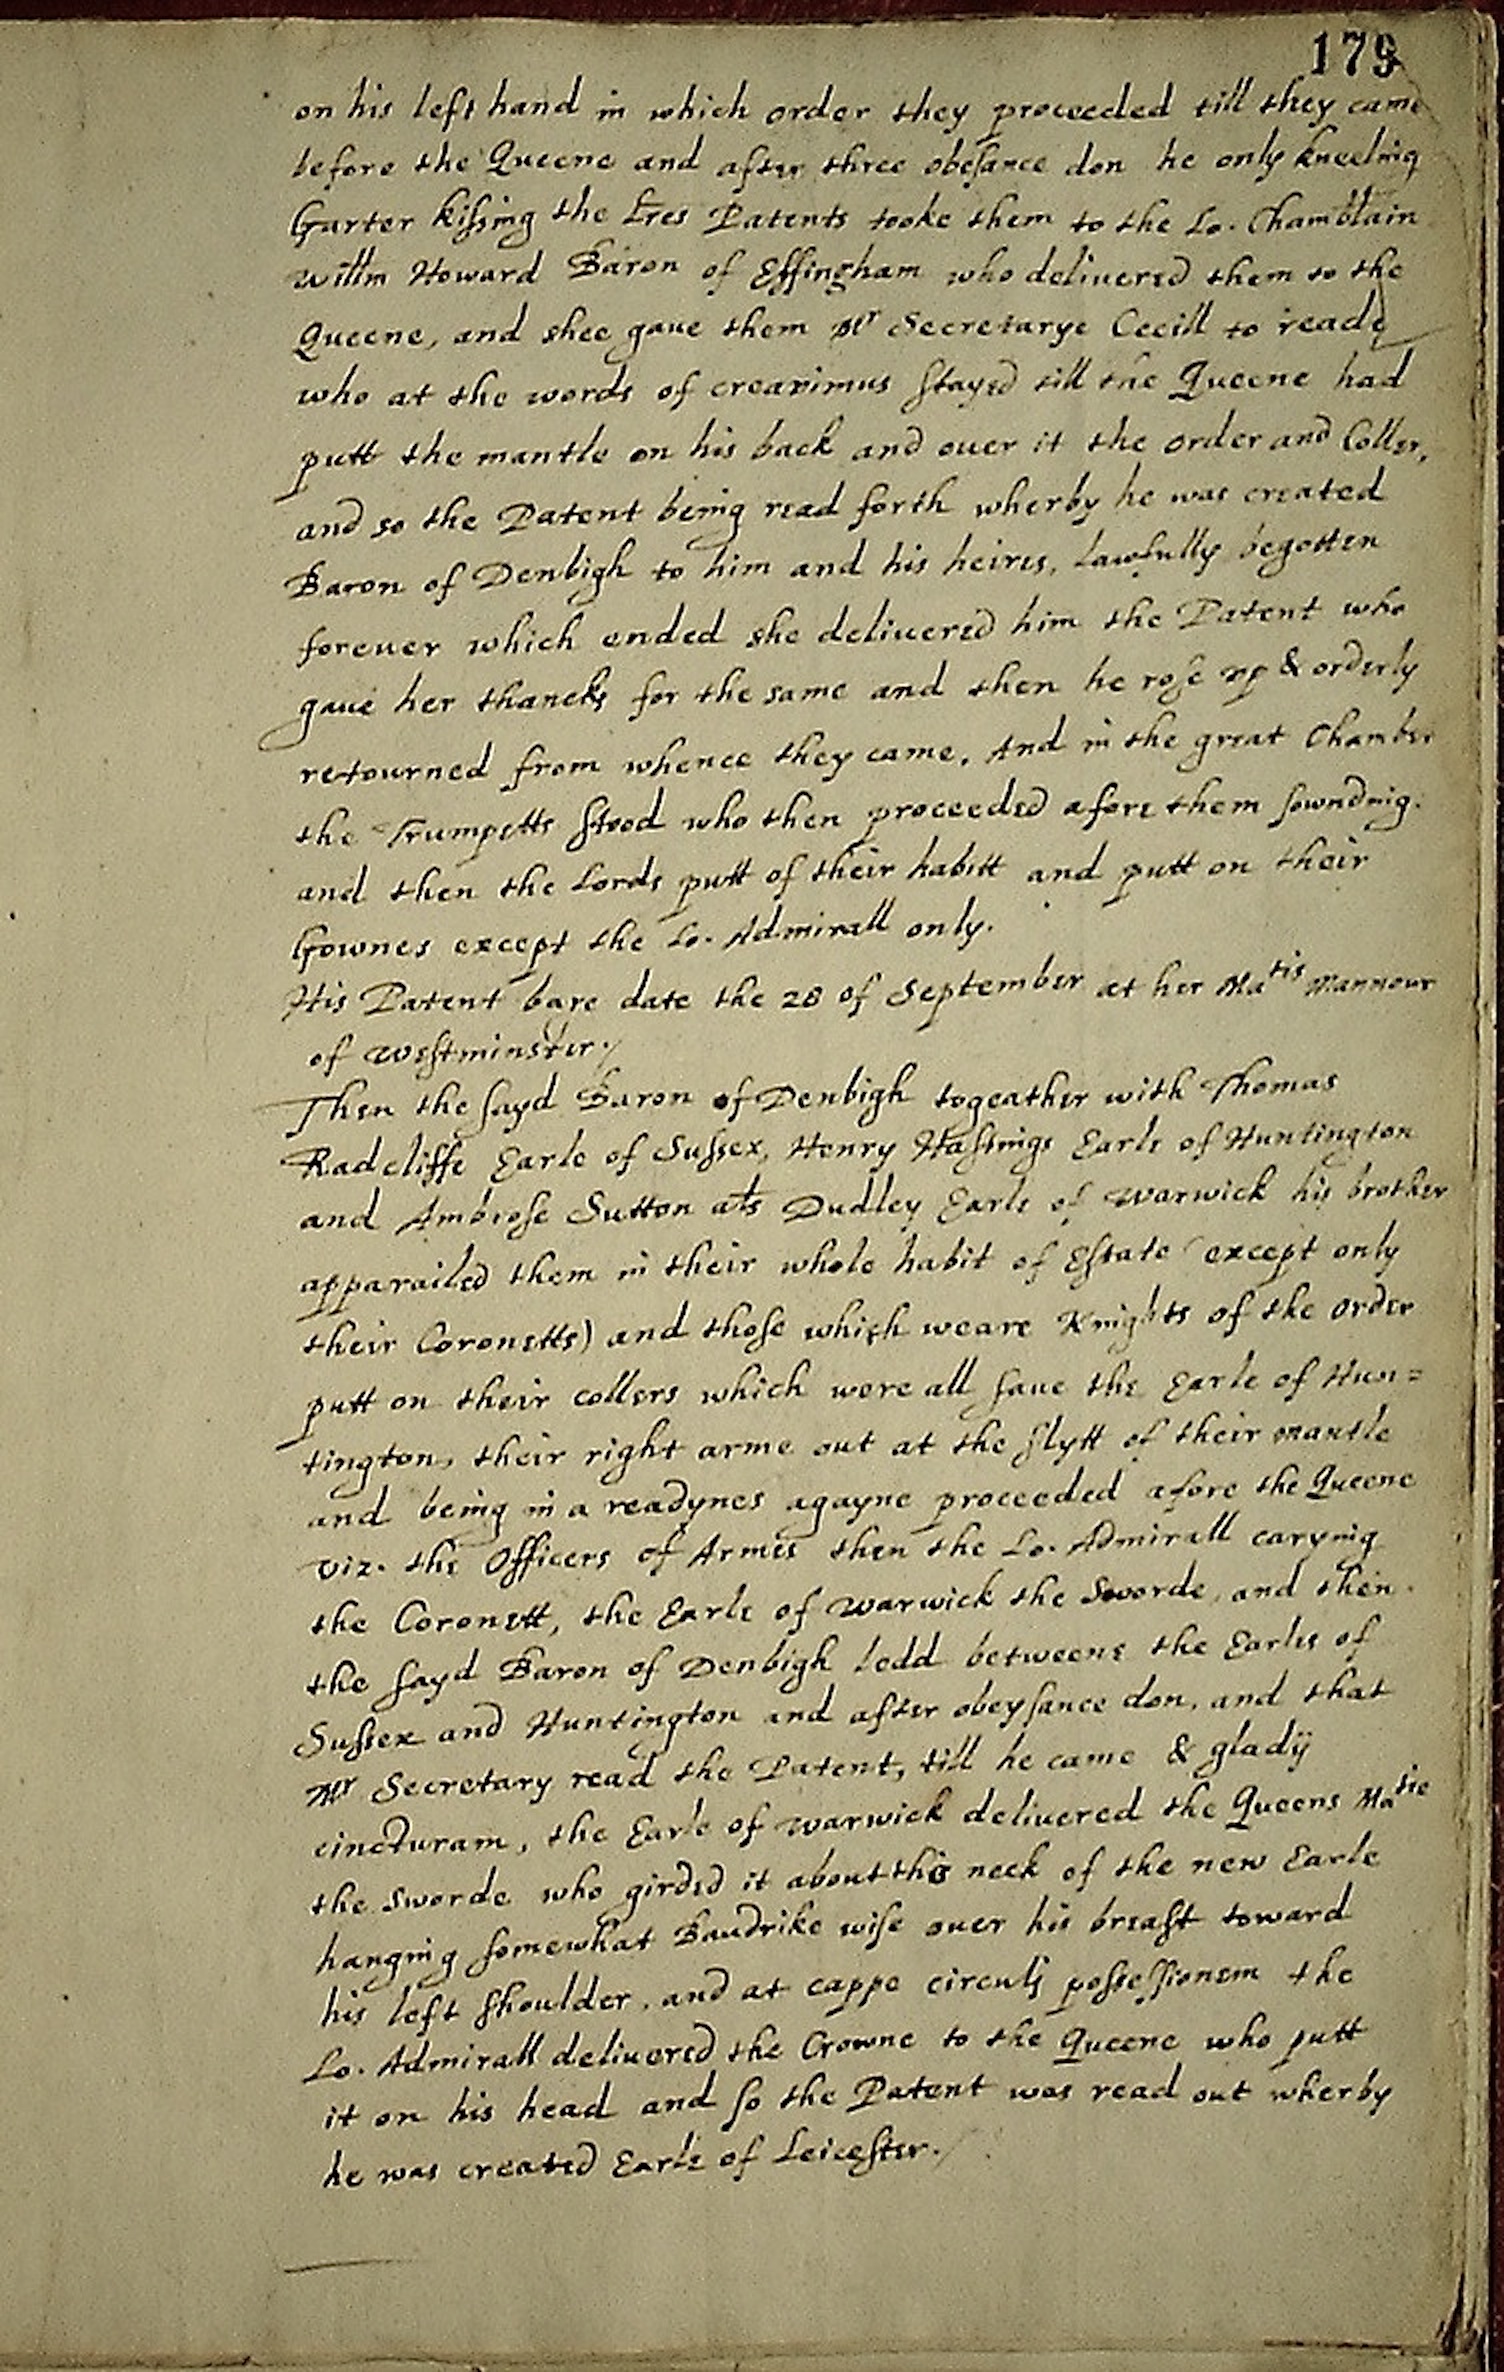 179
on his left hand in which order they proceeded till they came
before the Queene and after three obesance don he only kneeling
Garter kissing the Lres Patents tooke them to the Lo. Chamblain
Willm Howard Baron of Effingham who deliuered them to the
Queene, and shee gaue them Mr Secretarye Cecill to reade
who at the words of creavimus stayed till the Queene had
putt the mantle on his back and ouer it the order and Coller,
and so the Patent being read forth wherby he was created
Baron of Denbigh to him and his heires, lawfully begotten
foreuer which ended she deliuered him the Patent who
gaue her thancks for the same and then he rose vp & orderly
retourned from whence they came, And in the great Chamber
the Trumpetts stood who then proceeded afore them sownding.
and then the Lords putt of their habitt and putt on their
Gownes except the Lo. Admirall only.
His Patent bare date the 28 of September at her Matis Mannour
of Westminster./
Then the sayd Baron of Denbigh togeather with Thomas
Radcliffe Earle of Sussex, Henry Hastings Earle of Huntington
and Ambrose Sutton als Dudley Earle of Warwick his brother
apparailed them in their whole habit of Estate (except only
their Coronetts) and those which weare Knights of the order
putt on their collers which were all saue the Earle of Hun=
tington, their right arme out at the slytt of their mantle
and being in a readynes agayne proceeded afore the Queene
viz. the Officers of Armes then the Lo. Admirall carying
the Coronett, the Earle of Warwick the Sworde, and then
the sayd Baron of Denbigh ledd betweene the Earles of
Sussex and Huntington and after obeysance don, and that
Mr Secretary read the Patent, till he came & gladij
cincturam, the Earle of Warwick deliuered the Queens Matie
the sworde who girded it about the neck of the new Earle
hanging somewhat Baudrike wise ouer his breast toward
his left shoulder, and at cappe circulj possessionem the
Lo. Admirall deliuered the Crowne to the Queene who putt
it on his head and so the Patent was read out wherby
he was created Earle of Leicester./